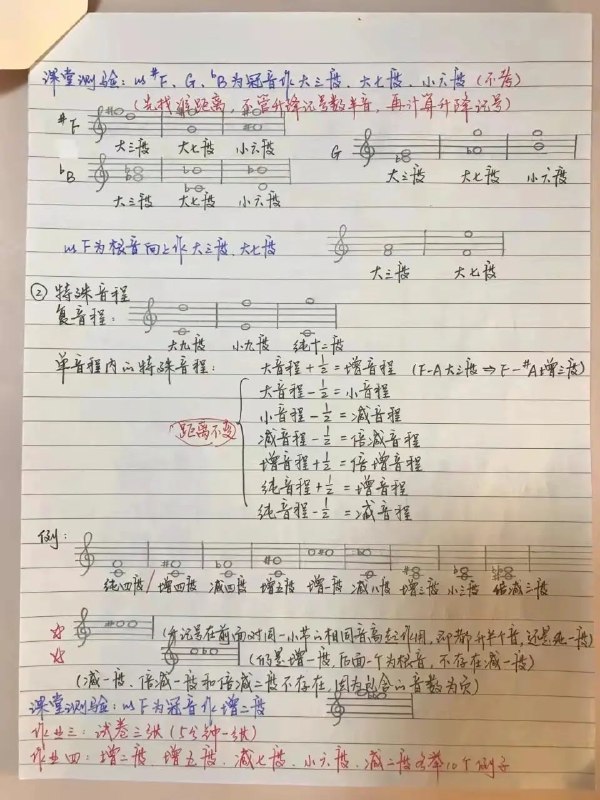 课堂测验：以#F、G、♭B为冠音作大三度、大七度、小六度（不考）
（先找准距离，不管升降记号数半音，再计算升降记号）
#F
大三度 大七度 小六度
G
大三度 大七度 小六度
♭B
大三度 大七度 小六度
以F为根音向上作大三度、大七度
大三度 大七度
② 特殊音程
复音程：
大九度 小九度 纯十二度
单音程内的特殊音程：
大音程+1/2=增音程 （F-A大三度⇒F-#A增三度）
大音程-1/2=小音程
小音程-1/2=减音程
距离不变
减音程-1/2=倍减音程
增音程+1/2=倍增音程
纯音程+1/2=增音程
纯音程-1/2=减音程
例：
纯四度/增四度 减四度 增五度 增一度 减八度 增三度 小三度 倍减三度
☆ （升记号在前面对同一小节的相同音高起作用，即都升半个音，还是纯一度）
☆ （仍是增一度，后面一个为根音，不存在减一度）
（减一度、倍减一度和倍减二度不存在，因为包含的音数为负）
课堂测验：以F为冠音作增二度
作业三：试卷三张（5分钟一张）
作业四：增二度、增五度、减七度、小六度、减二度各举10个例子